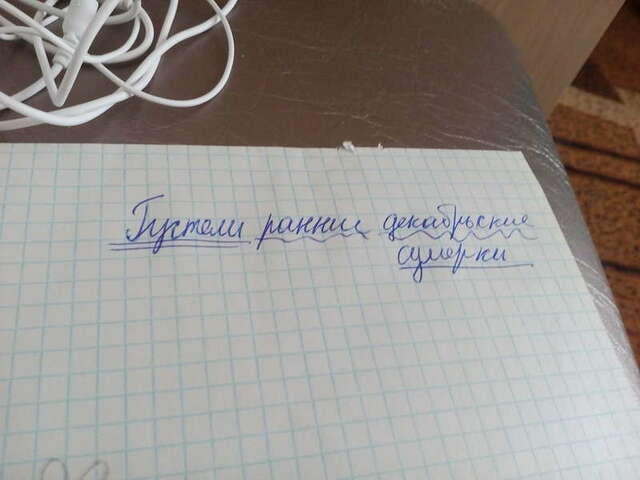 Густели ранние декабрьские
сумерки